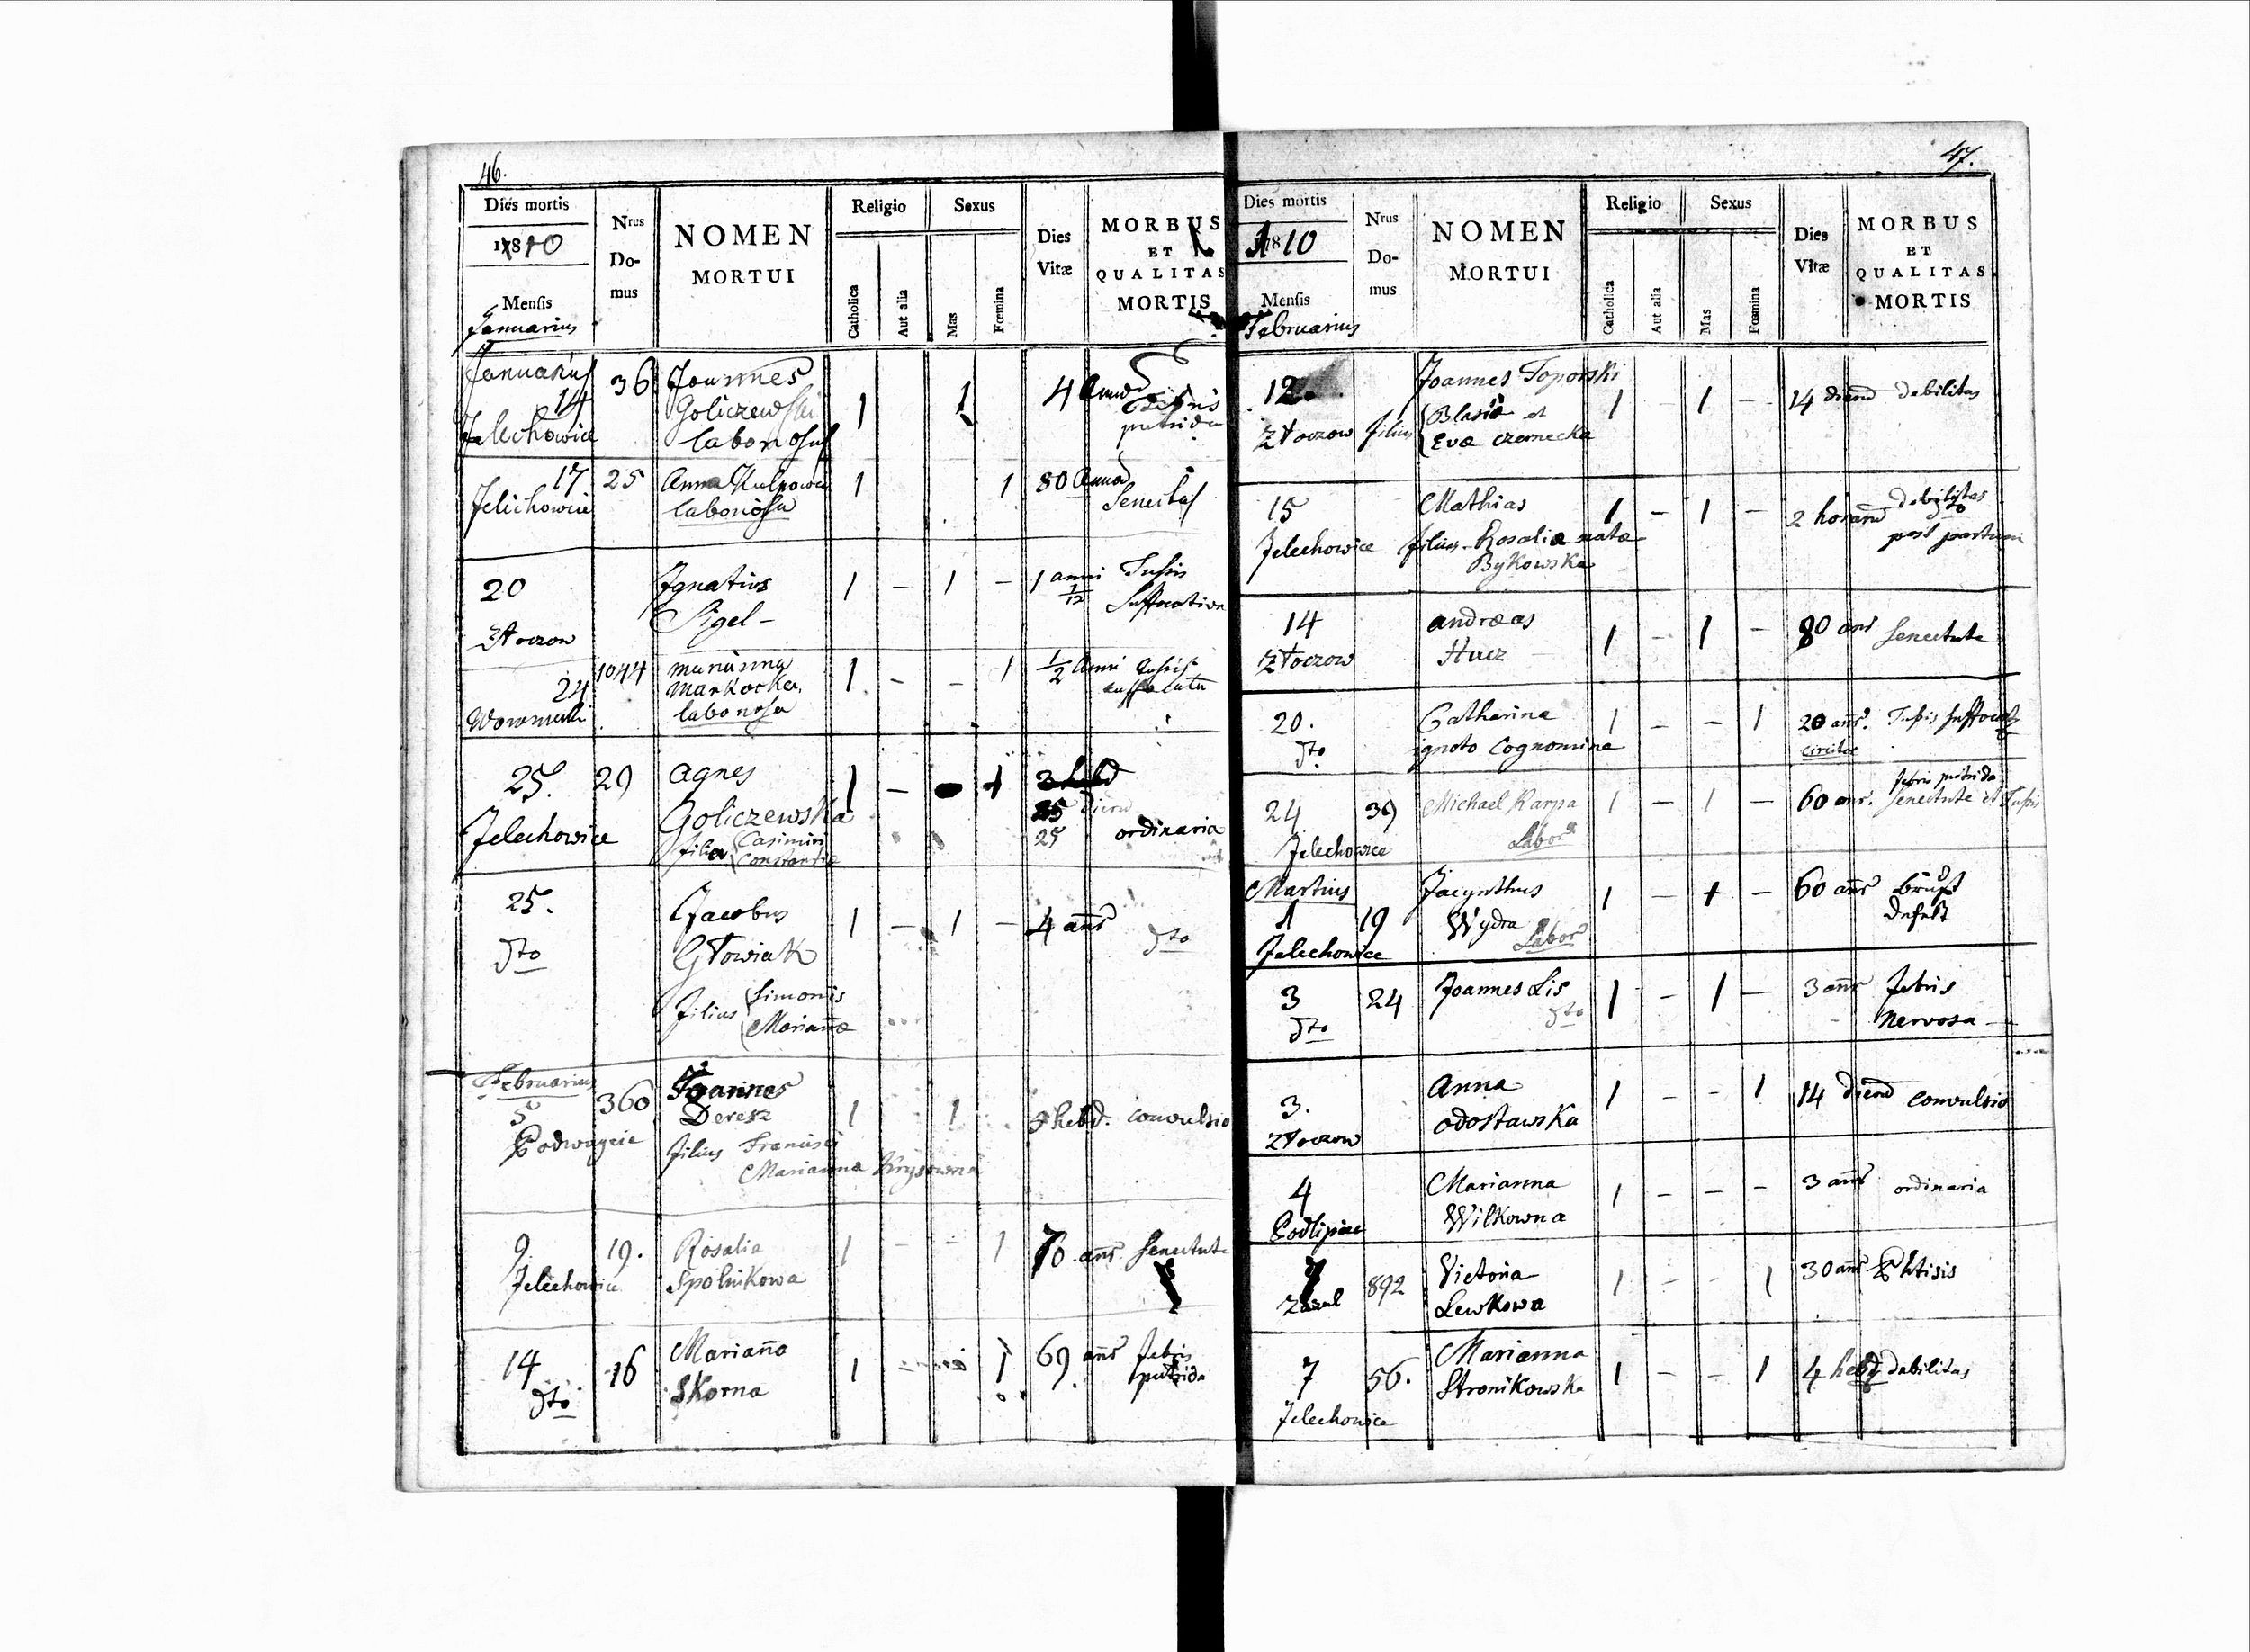 46.
Dies mortis
1810
Mensis
Januarius
Nrus
Do-
mus
NOMEN
MORTUI
Religio
Catholica
Aut alia
Sexus
Mas
Fœmina
Dies
Vitæ
MORBUS
ET
QUALITAS
MORTIS
Januarius 36 Joannes
14 Goliczewski 1 1 4 Annor
Jelechowice laboriosus putrida
17 25 Anna 1 1 80 Annor
Jelichowice laboriosa Senectus
20 Ignatius 1 – 1 – 1 anni Tussis
1/12
Złoczow Sigel – Suffocativa
1044 Marianna 1 – – 1 1/2 Anni tussis
24 Markocka
laboriosa
25. 29 Agnes 1 – 1
Goliczewska
Jelechowice filia Casimiri 25 ordinaria
Constantia
25. Jacobus 1 – 1 – 4 anñr
dto Głowiak dto
filius Simonis
Mariañæ
Februarius
5 360 Joannes
Deresz 1 1 hebd. convulsio
filius Francisci
Marianna
9. 19. Rosalia 1 – – 1 70 anr. Senectute
Jelechowice Spolnikowa
14 16 Mariaña 1 1 69 anñr febris
dto Skorna putrida
47.
Dies mortis
1810
Mensis
Februarius
Nrus
Do-
mus
NOMEN
MORTUI
Religio
Catholica
Aut alia
Sexus
Mas
Fœmina
Dies
Vitæ
MORBUS
ET
QUALITAS
MORTIS
12. Joannes Toporski 1 – 1 – 14 dierum debilitas
Złoczow filius Blasii et
Evæ Czernecka
15 Mathias 1 – 1 – 2 horarum debilitas
Jelechowice filius Rosaliæ natæ post partum
Bykowska
14 Andreas 1 – 1 – 80 anr Senectute
Złoczow Hucz
20. Catharina 1 – – 1 20 anñr. Tussis
dto ignoto Cognomine circiter
24 39 Michael Karpa 1 – 1 – 60 anr. febris putrida
Senectute et Tussis
Jelechowice Labor
Martius Jacynthus 1 – 1 – 60 anñr Brust
1 19 Wydra Defekt
Jelechowice Labor
3 24 Joannes Lis 1 – 1 – 3 anñr febris
dto dto Nervosa
3. Anna 1 – – 1 14 dierum convulsio
Złoczow Odostawska
4 Marianna 1 – – – 3 anñr ordinaria
Podlipiec Wilkowna
892 Victoria 1 – – 1 30 anñr Phtisis
Zazul Lewkowa
7 56. Marianna 1 – – 1 4 hebd debilitas
Jelechowice Stronikowska